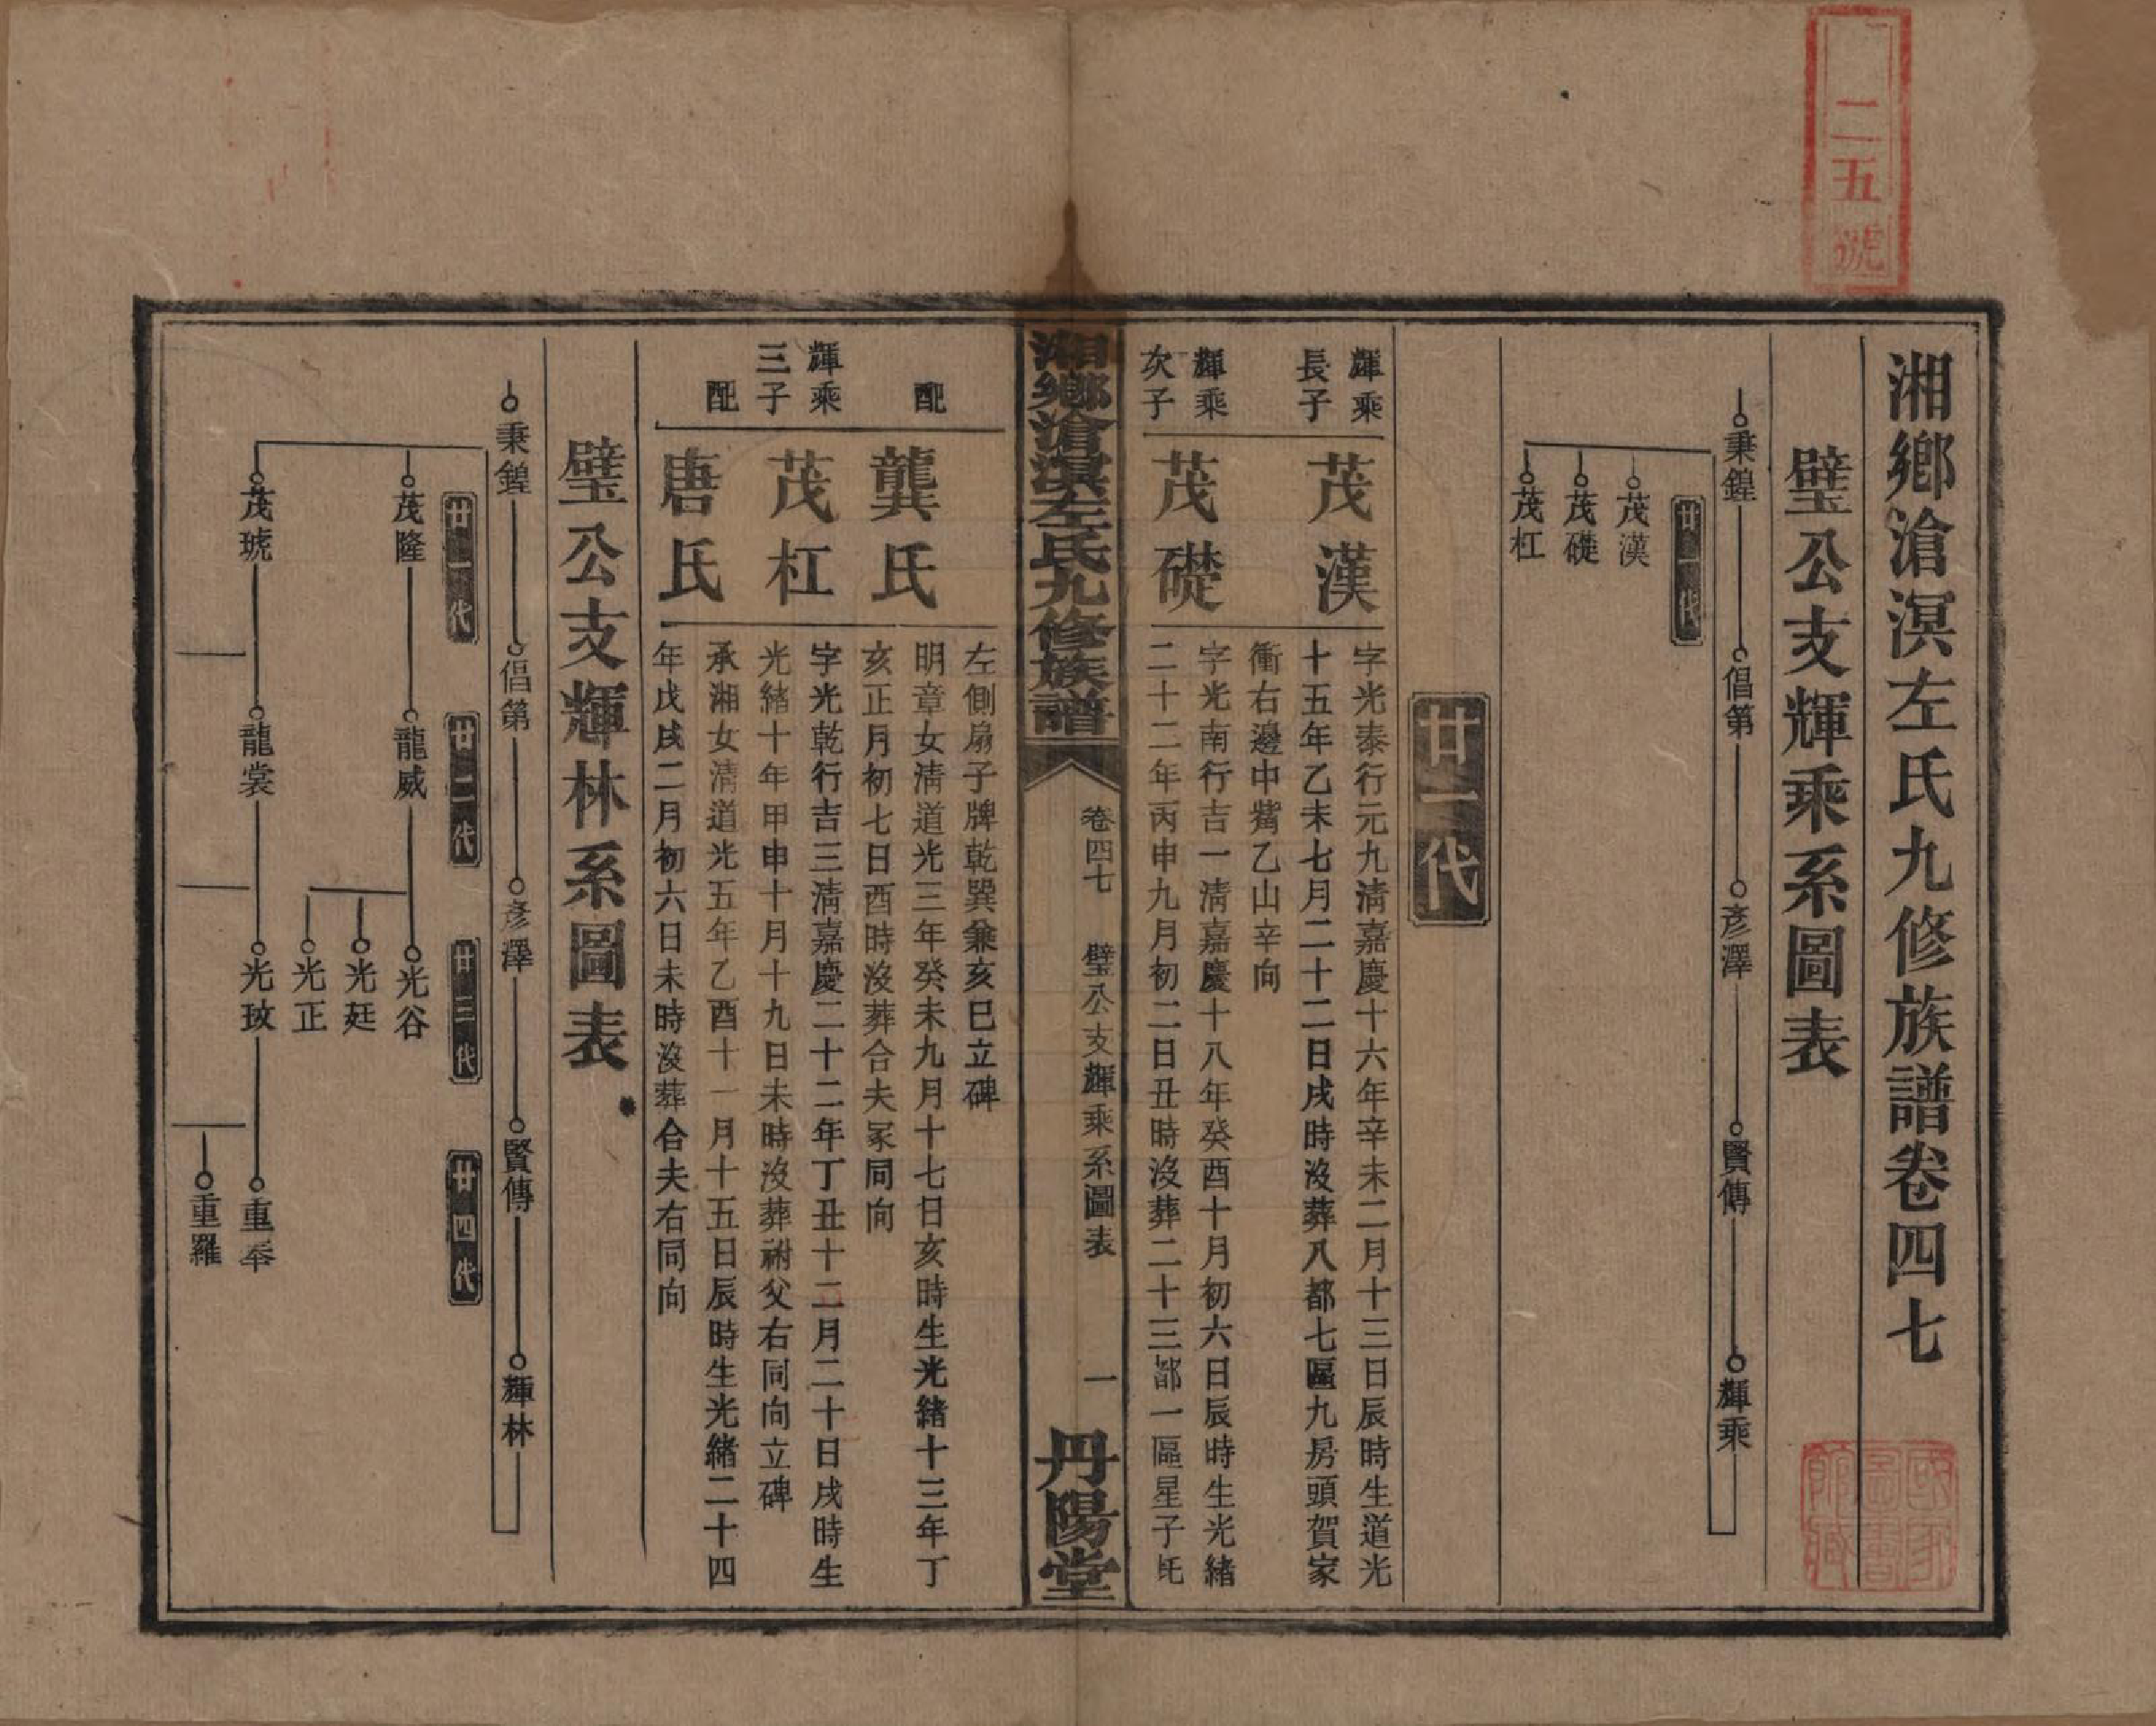 二五號
湘鄉滄溟左氏九修族譜卷四七
國家圖書館藏
璧公支輝乘系圖表
秉鍠 倡第 彥澤 賢傳 輝乘
廿一代
茂漢
茂礎
茂杠
廿一代
輝乘長子
茂漢
字光泰行元九淸嘉慶十六年辛未二月十三日辰時生道光
十五年乙未七月二十二日戌時沒葬八都七區九房頭賀家
衝右邊中嘴乙山辛向
輝乘次子
茂礎
字光南行吉一淸嘉慶十八年癸酉十月初六日辰時生光緒
二十二年丙申九月初二日丑時沒葬二十三都一區星子
湘鄉滄溟左氏九修族譜
卷四七 璧公支輝乘系圖表 一
丹陽堂
左側扇子牌乾巽兼亥巳立碑
配
龔氏
明章女淸道光三年癸未九月十七日亥時生光緒十三年丁
亥正月初七日酉時沒葬合夫冢同向
輝乘三子
茂杠
字光乾行吉三淸嘉慶二十二年丁丑十二月二十日戌時生
光緒十年甲申十月十九日未時沒葬祔父右同向立碑
配
唐氏
承湘女淸道光五年乙酉十一月十五日辰時生光緒二十四
年戊戌二月初六日未時沒葬合夫右同向
璧公支輝林系圖表
秉鍠 倡第 彥澤 賢傳 輝林
廿一代 廿二代 廿三代 廿四代
茂隆 龍威 光谷
光廷
光正
茂琥 龍裳 光玫 重奉
重羅